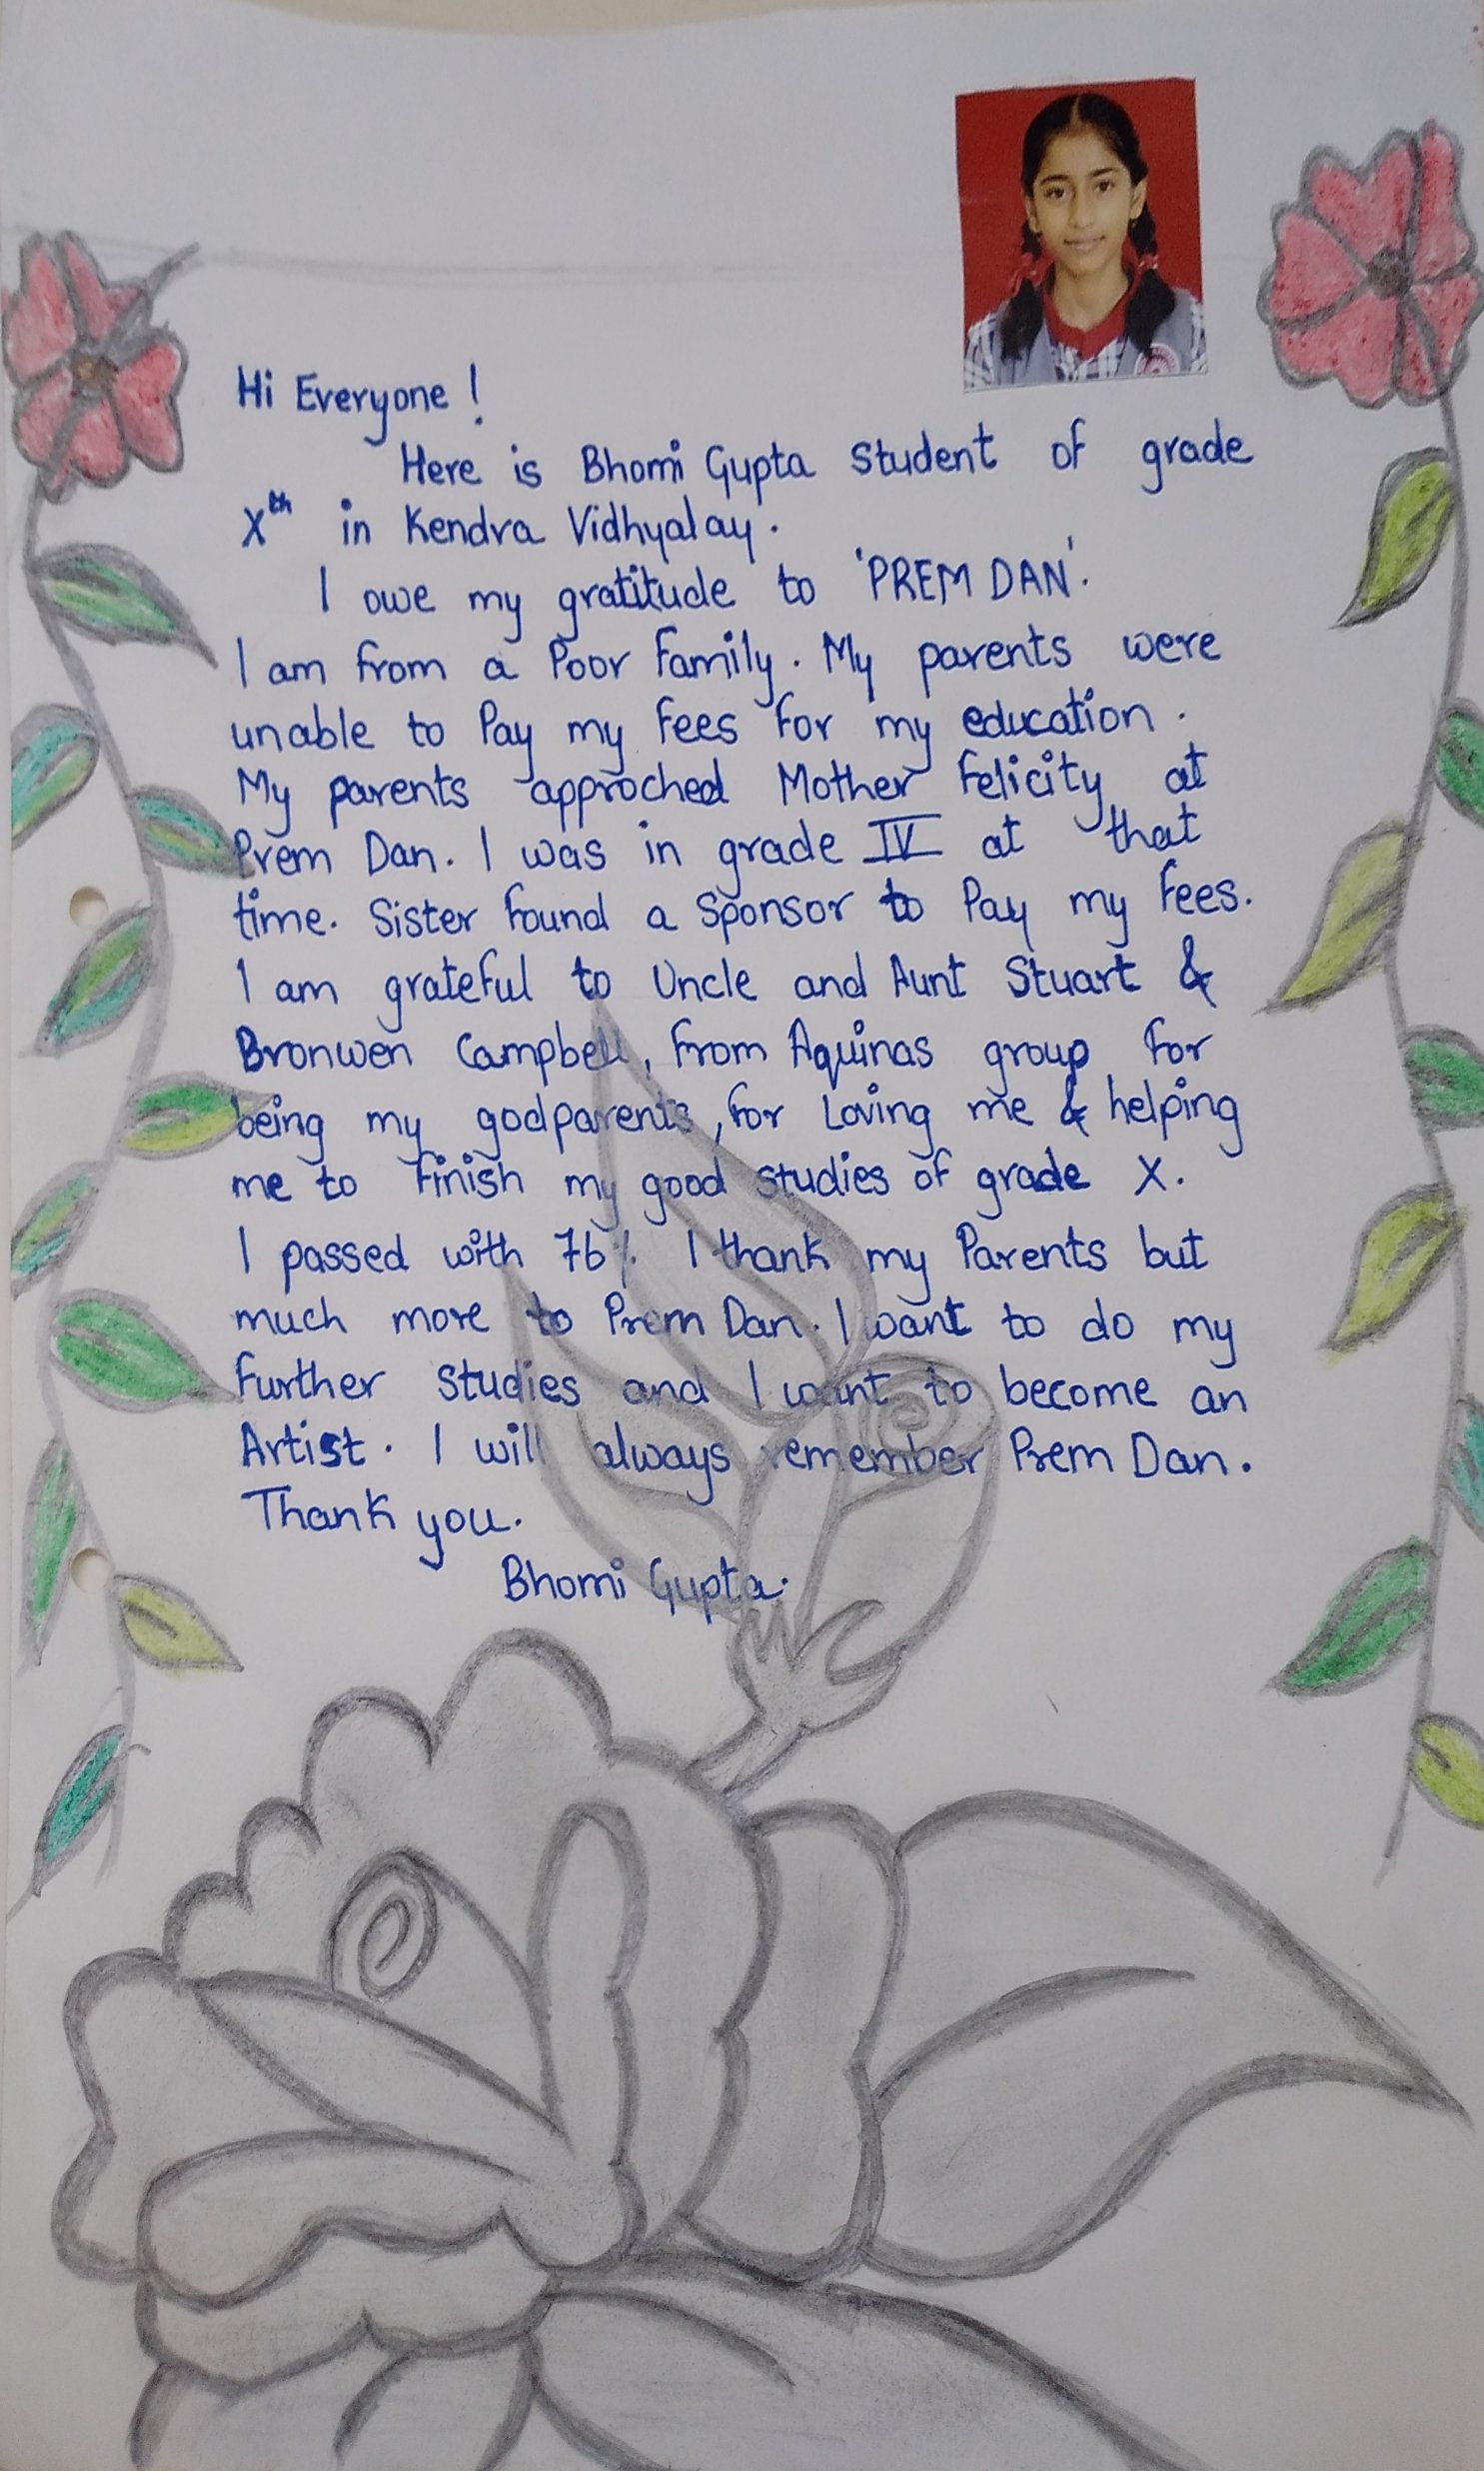 Hi Everyone !
Here is Bhomi Gupta student of grade
Xth in Kendra Vidhyalay.
I owe my gratitude to 'PREM DAN'.
I am from a Poor Family. My parents were
unable to Pay my Fees for my education.
My parents approched Mother Felicity at
Prem Dan. I was in grade IV at that
time. Sister Found a Sponsor to Pay my Fees.
I am grateful to Uncle and Aunt Stuart &
Bronwen Campbell, From Aquinas group For
being my godparents, For Loving me & helping
me to Finish my good studies of grade X.
I passed with 76%. I thank my Parents but
much more to Prem Dan. I want to do my
Further studies and I want to become an
Artist. I will always remember Prem Dan.
Thank you.
Bhomi Gupta.